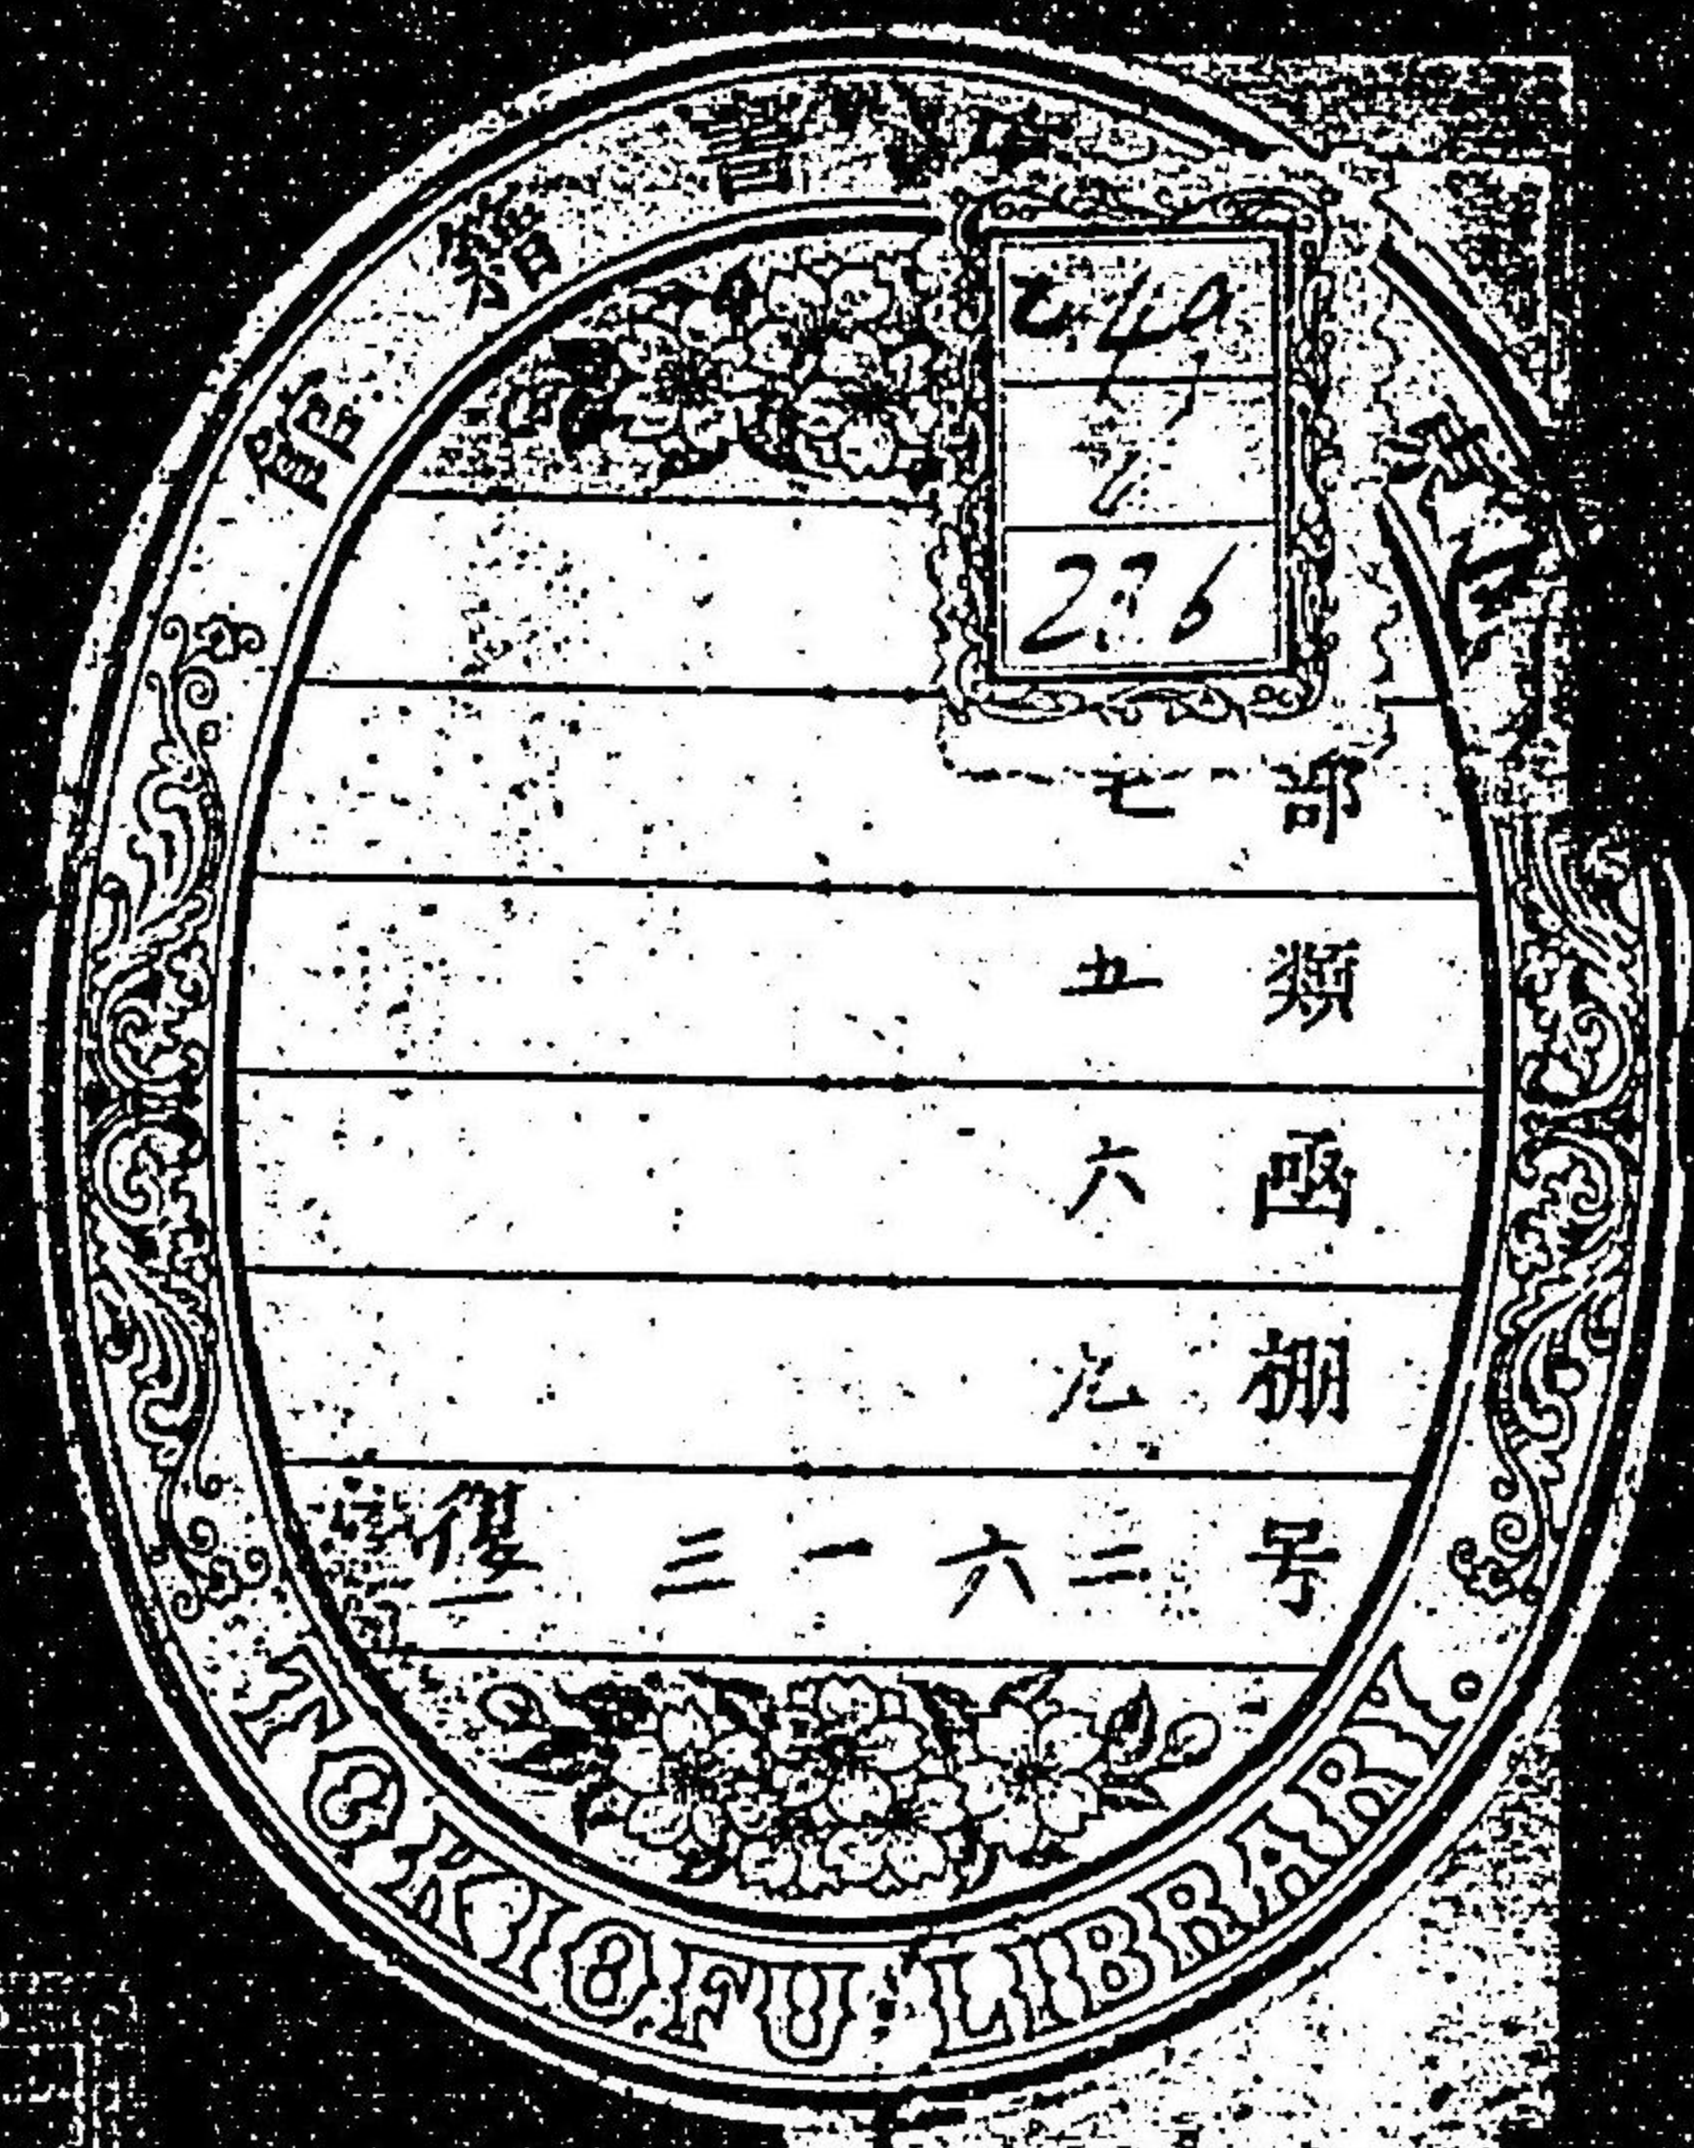 東京府書籍館
236
部 七
類 五
凾 六
棚 九
号 二六一三 復一
TOKIO FU LIBRARY.